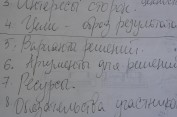 3. Интересы сторон.
4. Цели - образ результата
5. Варианты решений.
6. Аргументы для решений
7 Ресурсы.
8 Обязательства участников